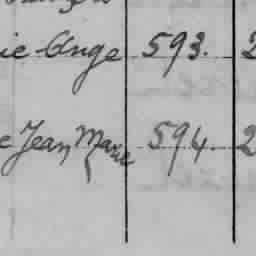 ie Ange 593. 2
e Jean Marie 594. 2